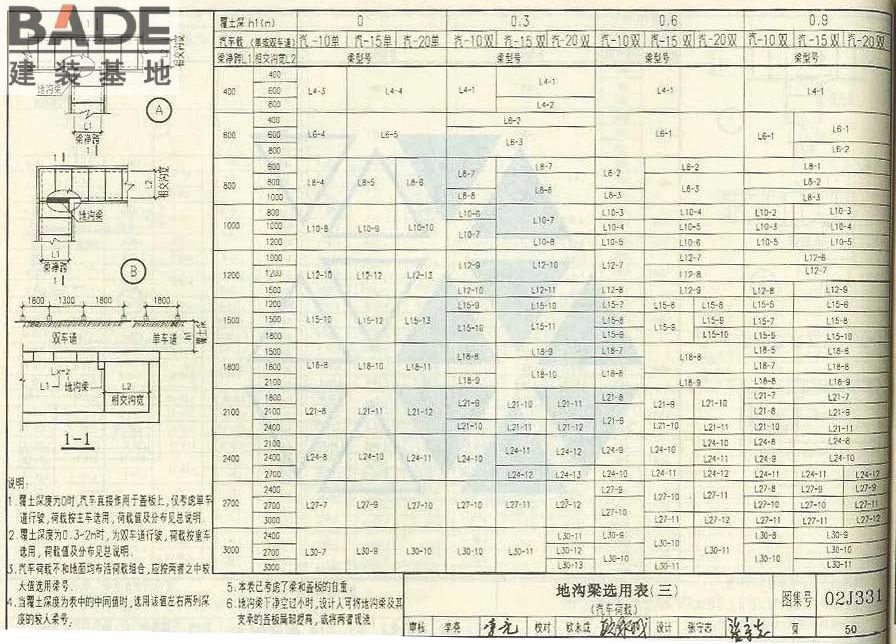 BADE
建装基地
相交沟宽
地沟梁
L1
梁净跨
A
L2
相交沟宽
地沟梁
L1
梁净跨
B
1800 1300 1800 1800
双车道 单车道
h1
覆土深
Lx-z
L1 地沟梁 L2
相交沟宽
1-1
覆土深 h1(m) 0 0.3 0.6 0.9
汽车载 (单或双车道) 汽-10单 汽-15单 汽-20单 汽-10双 汽-15双 汽-20双 汽-10双 汽-15双 汽-20双 汽-10双 汽-15双 汽-20双
梁净跨L1 相交沟宽L2 梁型号 梁型号 梁型号 梁型号
400 400 600 800 L4-3 L4-4 L4-1 L4-1 L4-2 L4-1 L4-1
600 400 600 800 L6-4 L6-5 L6-2 L6-3 L6-1 L6-1 L6-1 L6-2
800 600 800 1000 L8-4 L8-5 L8-6 L8-7 L8-8 L8-7 L8-8 L8-2 L8-3 L8-2 L8-3 L8-1 L8-2 L8-3
1000 800 1000 1200 L10-8 L10-9 L10-10 L10-6 L10-7 L10-7 L10-8 L10-3 L10-4 L10-5 L10-4 L10-5 L10-6 L10-2 L10-3 L10-5 L10-3 L10-4 L10-5
1200 1000 1200 1500 L12-10 L12-12 L12-13 L12-9 L12-10 L12-10 L12-11 L12-7 L12-8 L12-7 L12-8 L12-9 L12-6 L12-7 L12-8 L12-9
1500 1200 1500 1800 L15-10 L15-12 L15-13 L15-9 L15-10 L15-10 L15-11 L15-7 L15-8 L15-9 L15-8 L15-9 L15-8 L15-9 L15-10 L15-5 L15-7 L15-8 L15-6 L15-8 L15-9
1800 1500 1800 2100 L18-8 L18-10 L18-11 L18-8 L18-9 L18-9 L18-10 L18-7 L18-8 L18-8 L18-9 L18-5 L18-7 L18-8 L18-6 L18-8 L18-9
2100 1800 2100 2400 L21-8 L21-11 L21-12 L21-9 L21-10 L21-10 L21-11 L21-11 L21-12 L21-8 L21-9 L21-9 L21-10 L21-10 L21-11 L21-7 L21-8 L21-10 L21-7 L21-9 L21-11
2400 2100 2400 2700 L24-8 L24-10 L24-11 L24-10 L24-11 L24-12 L24-12 L24-13 L24-9 L24-10 L24-10 L24-11 L24-10 L24-11 L24-12 L24-8 L24-9 L24-11 L24-8 L24-10 L24-11 L24-12
2700 2400 2700 3000 L27-7 L27-9 L27-10 L27-10 L27-11 L27-12 L27-9 L27-10 L27-10 L27-11 L27-11 L27-12 L27-8 L27-10 L27-11 L27-9 L27-10 L27-11 L27-9 L27-11 L27-12
3000 2400 2700 3000 L30-7 L30-9 L30-10 L30-10 L30-11 L30-11 L30-12 L30-13 L30-9 L30-10 L30-10 L30-11 L30-11 L30-8 L30-10 L30-9 L30-10 L30-11
说明:
1.覆土深度为0时,汽车直接作用于盖板上,仅考虑单车
道行驶,荷载按主车选用,荷载值及分布见总说明.
2.覆土深度为0.3-2m时,为双车道行驶,荷载按重车
选用,荷载值及分布见总说明.
3.汽车荷载不和地面均布活荷载组合,应按两者之中较
大值选用梁号.
4.当覆土深度为表中的中间值时,选用该值左右两列深
度的较大梁号.
5.本表已考虑了梁和盖板的自重.
6.地沟梁下净空过小时,设计人可将地沟梁及其
支承的盖板局部提高,或将两者现浇.
地沟梁选用表(三)
(汽车荷载)
图集号 02J331
审核 李亮 校对 欧永成 设计 张守志 页 50